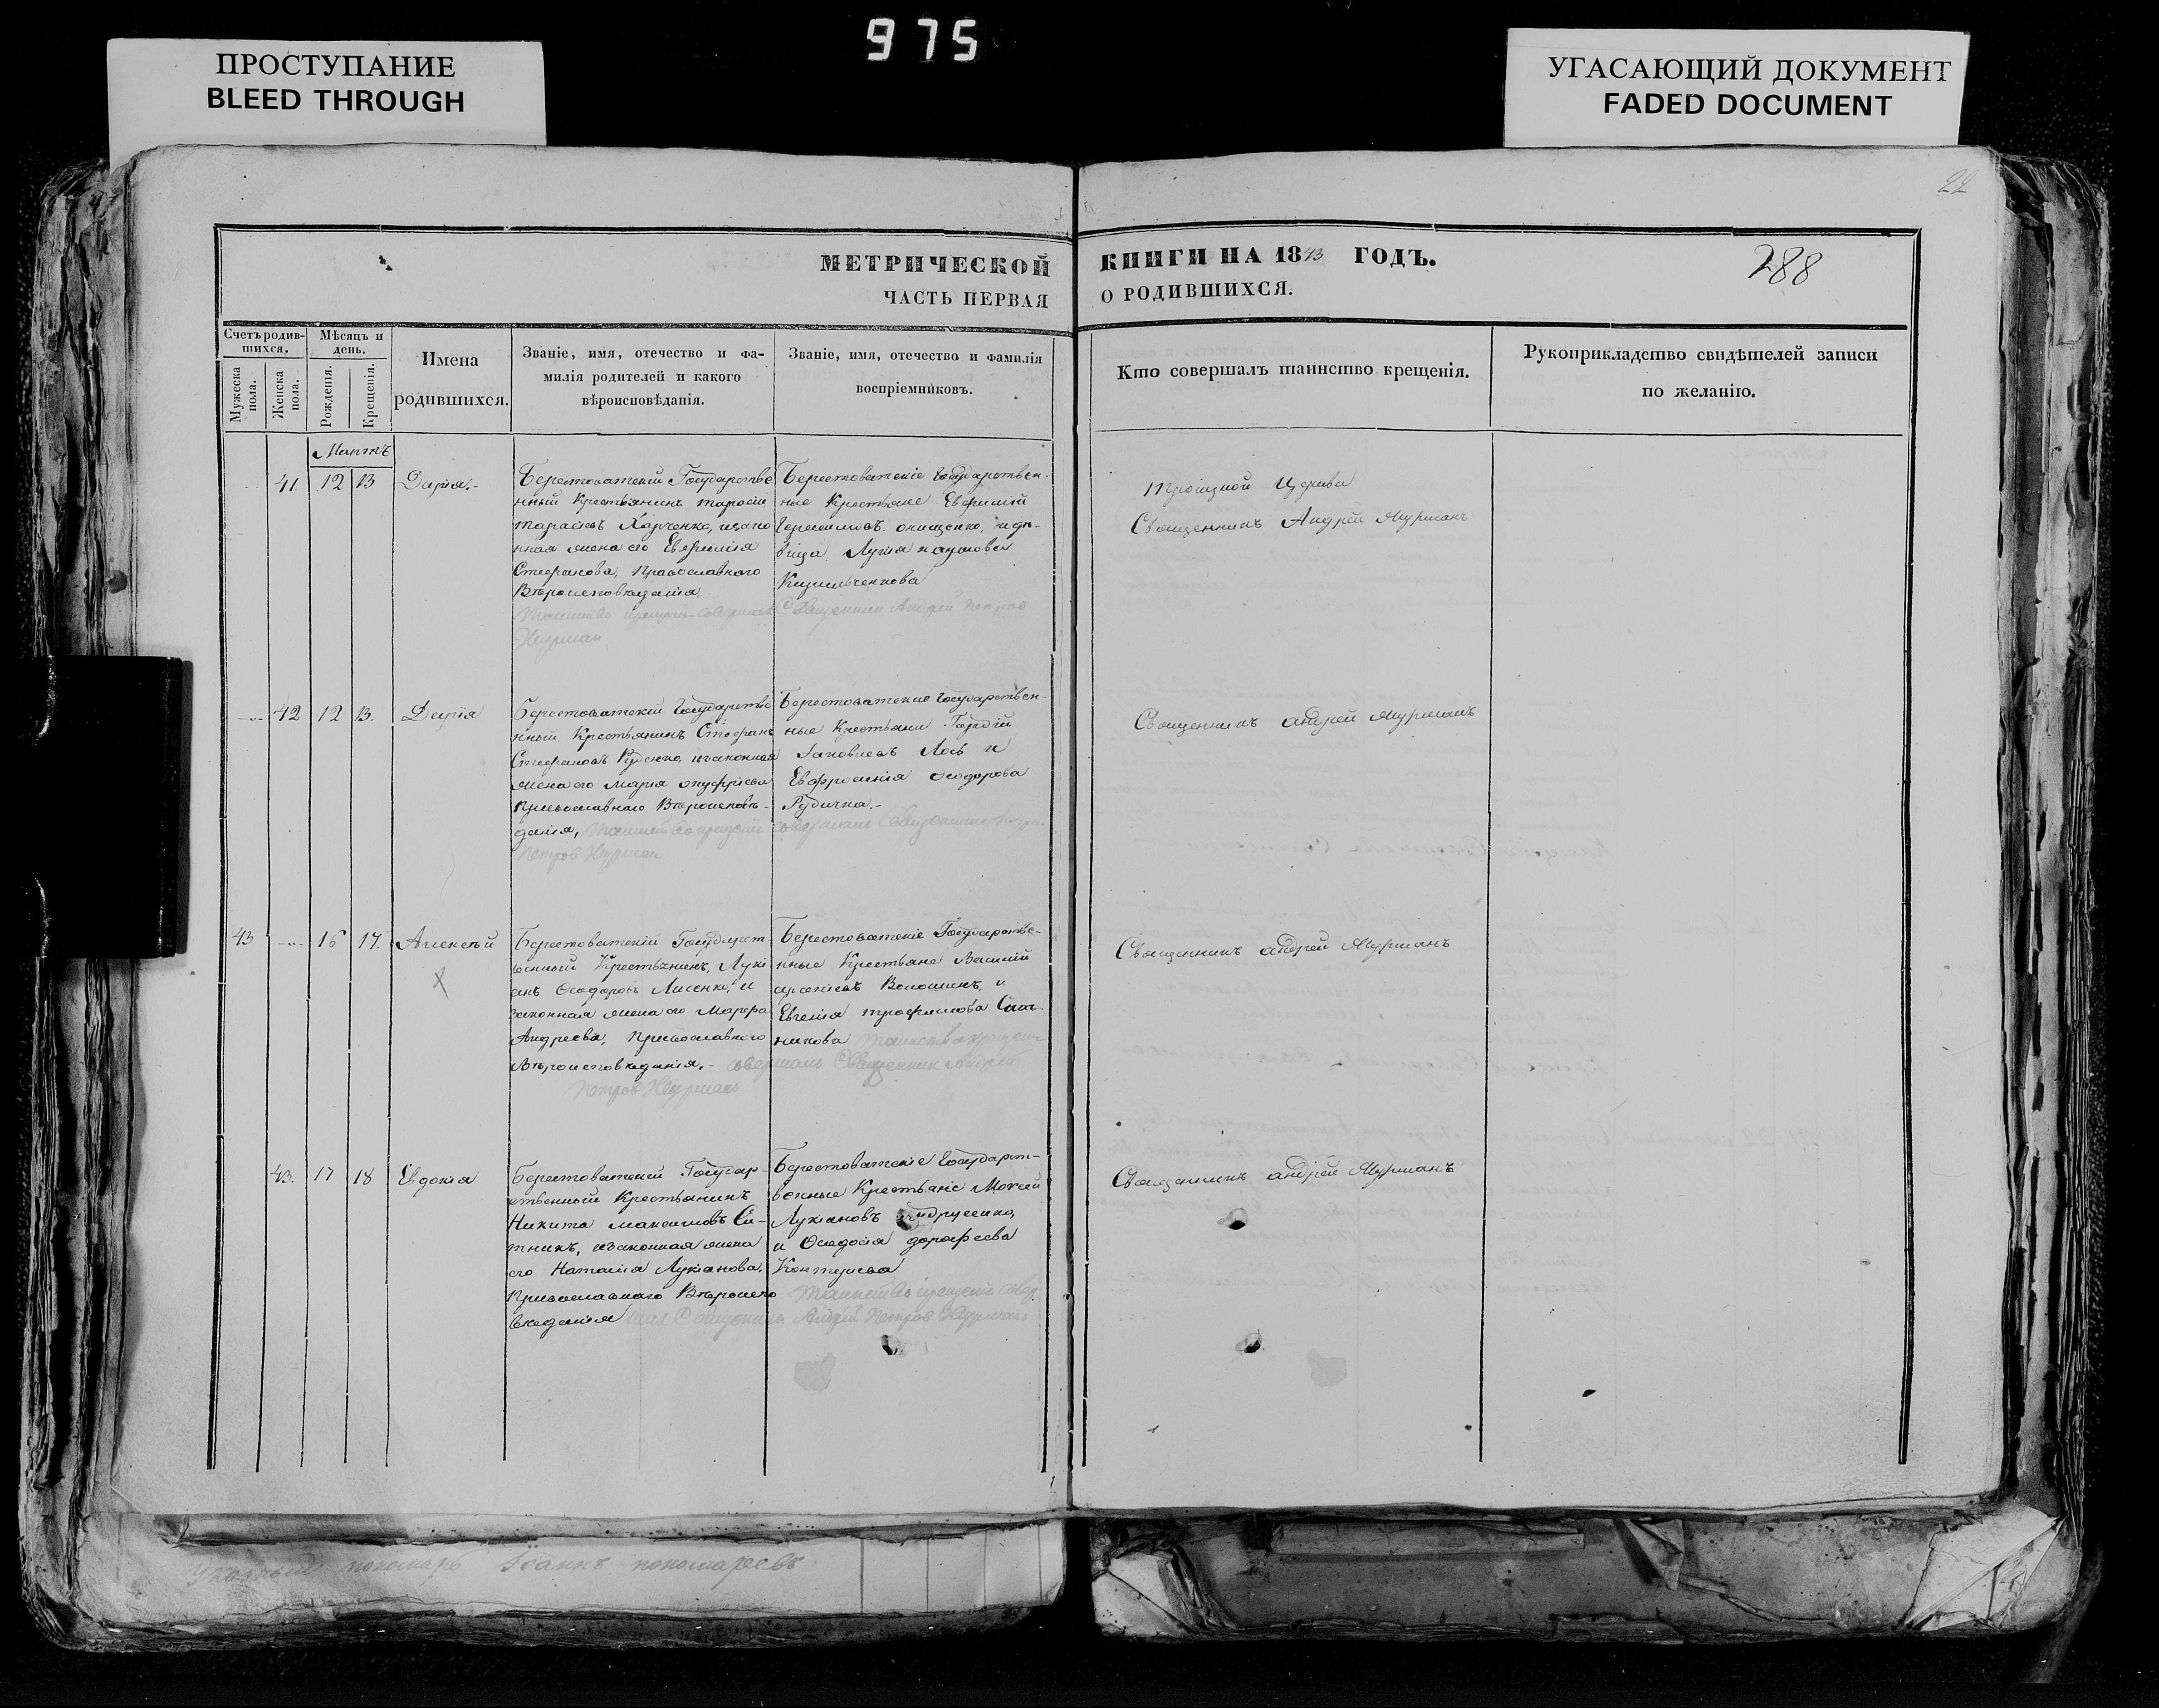 975
ПРОСТУПАНИЕ
BLEED THROUGH
УГАСАЮЩИЙ ДОКУМЕНТ
FADED DOCUMENT
22
288
МЕТРИЧЕСКОЙ
ЧАСТЬ ПЕРВАЯ
КНИГИ НА 1843 ГОДЪ.
О РОДИВШИХСЯ.
Счетъ родив-
шихся.
Мужеска
пола.
Женска
пола.
Мѣсяцъ и
день.
Рожденія.
Крещенія.
Имена
родившихся.
Званіе, имя, отечество и фа-
милія родителей и какого
вѣроисповѣданія.
Званіе, имя, отечество и фамилія
воспріемниковъ.
Кто совершалъ таинство крещенія.
Рукоприкладство свидѣтелей записи
по желанію.
Мартъ
41 12 13 Дарія.-
Берестоватскій Государстве
нный Крестьянинъ Тарасій
Тарасіевъ Харченко, изако
нная жена его Евфимія
Стефанова, Православного
Вѣроисповѣданія,
Берестоватскіе Государствен-
ные Крестьяне Евфимій
Герасимовъ Онищенко, и дѣ-
вица Наумова
Таинство крещенія совершалъ Священник Андрей Петров
Троицкой Церкви
Священникъ Андрей
42 12 13. Дарія
Берестоватскій Государстве
нный Крестьянинъ Стефанъ
Стефановъ изаконная
жена его Марія Онуфріева
Православнаго Вѣроисповѣ-
данія,
Берестоватскіе Государствен-
ные Крестьяне Гордій
Яковлевъ Лось и
Евфросинія Феодорова
Таинство крещенія совершалъ Священник
Петров
Священникъ Андрей
43 16 17. Алексѣй
Берестоватскій Государст-
венный Крестьянинъ, Лукі
анъ Феодоровъ Лисенко, и
законная жена его Марфа
Андреева, Православного
Вѣроисповѣданія,-
Берестоватскіе Государстве-
нные Крестьяне Василій
Волошинъ, и
Евгенія Трофимова Сит-
никова Таинство крещенія
совершалъ Священник Андрей
Петров
Священникъ Андрей
43. 17 18 Евдокія
Берестоватскій Государ-
ственный Крестьянинъ
Никита Максимовъ Си-
тникъ, изаконная жена
его Наталія Лукіанова,
Православнаго Вѣроиспо
вѣданія
Берестоватскіе Государст-
венные Крестьяне Моисей
Лукіановъ Андрусенко,
и Феодосія Дорофеева
Таинство крещенія совер
шал Священникъ Андрей Петров
Священникъ Андрей
пономарь Іоаннъ Пономаревъ